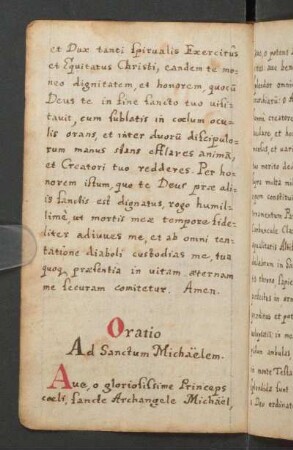 et Dux tanti spirualis Exercitûs
et Equitatus Christi, eandem te mo-
neo dignitatem, et honorem, quorū
Deus te in fine sancto tuo uisi-
tauit, cum sublatis in cœlum ocu-
lis orans, et inter duorū discipulo-
rum manus stans efflares animā,
et Creatori tuo redderes. Per ho-
norem istum, quo te Deus præ ali-
is sanctis est dignatus, rogo humil-
limè, ut mortis meæ tempore fide-
liter adiuues me, et ab omni ten-
tatione diaboli custodias me, tua
quoq præsentia in uitam æternam
me securam comitetur. Amen.
Oratio
Ad Sanctum Michäelem.
Aue, o gloriosissime Princeps
cœli, sancte Archangele Michäel,